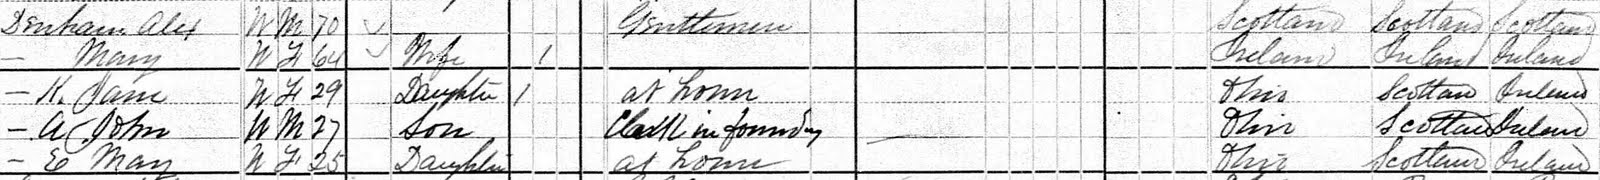 Denham Alex W M 70 Gentlemen Scotland Scotland Scotland
— Mary W F 64 Wife 1 Ireland Ireland Ireland
— K. Jane W F 29 Daughter 1 at home Ohio Scotland Ireland
— A John W M 27 Son Clerk in foundry — Ohio Scotland Ireland
— E May W F 25 Daughter at home Ohio Scotland Ireland